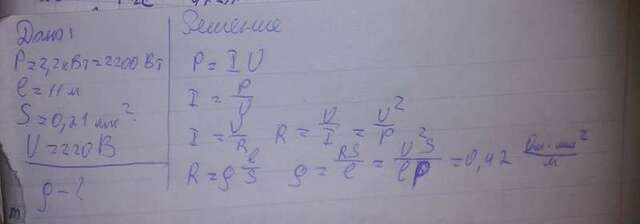 Дано:
P=2,2кВт=2200 Вт
l=11м
S=0,21 мм²
U=220В
ρ-?
Решение
P=IU
I=P/U
I=U/R R=U/I=U²/P
R=ρ l/S ρ=RS/l=U²S/lP=0,42 Ом·мм²/м